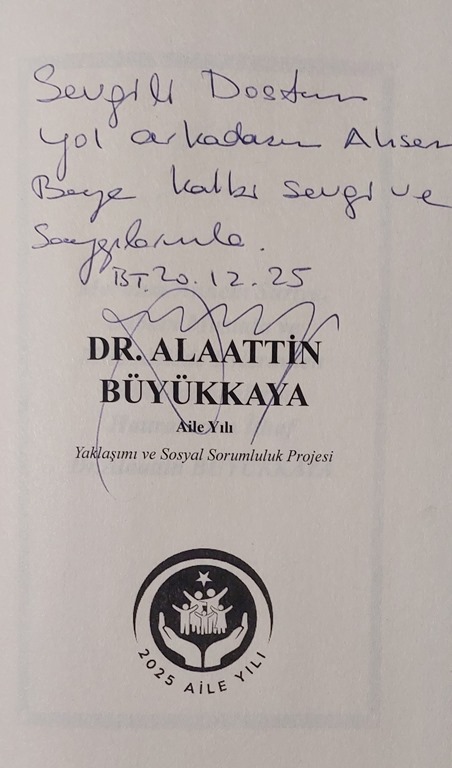 Sevgili Dostum
yol arkadaşım Ahsen
Beye kalbi sevgi ve
Saygılarımla.
BT. 20.12.25
DR. ALAATTİN
BÜYÜKKAYA
Aile Yılı
Yaklaşımı ve Sosyal Sorumluluk Projesi
2025 AİLE YILI